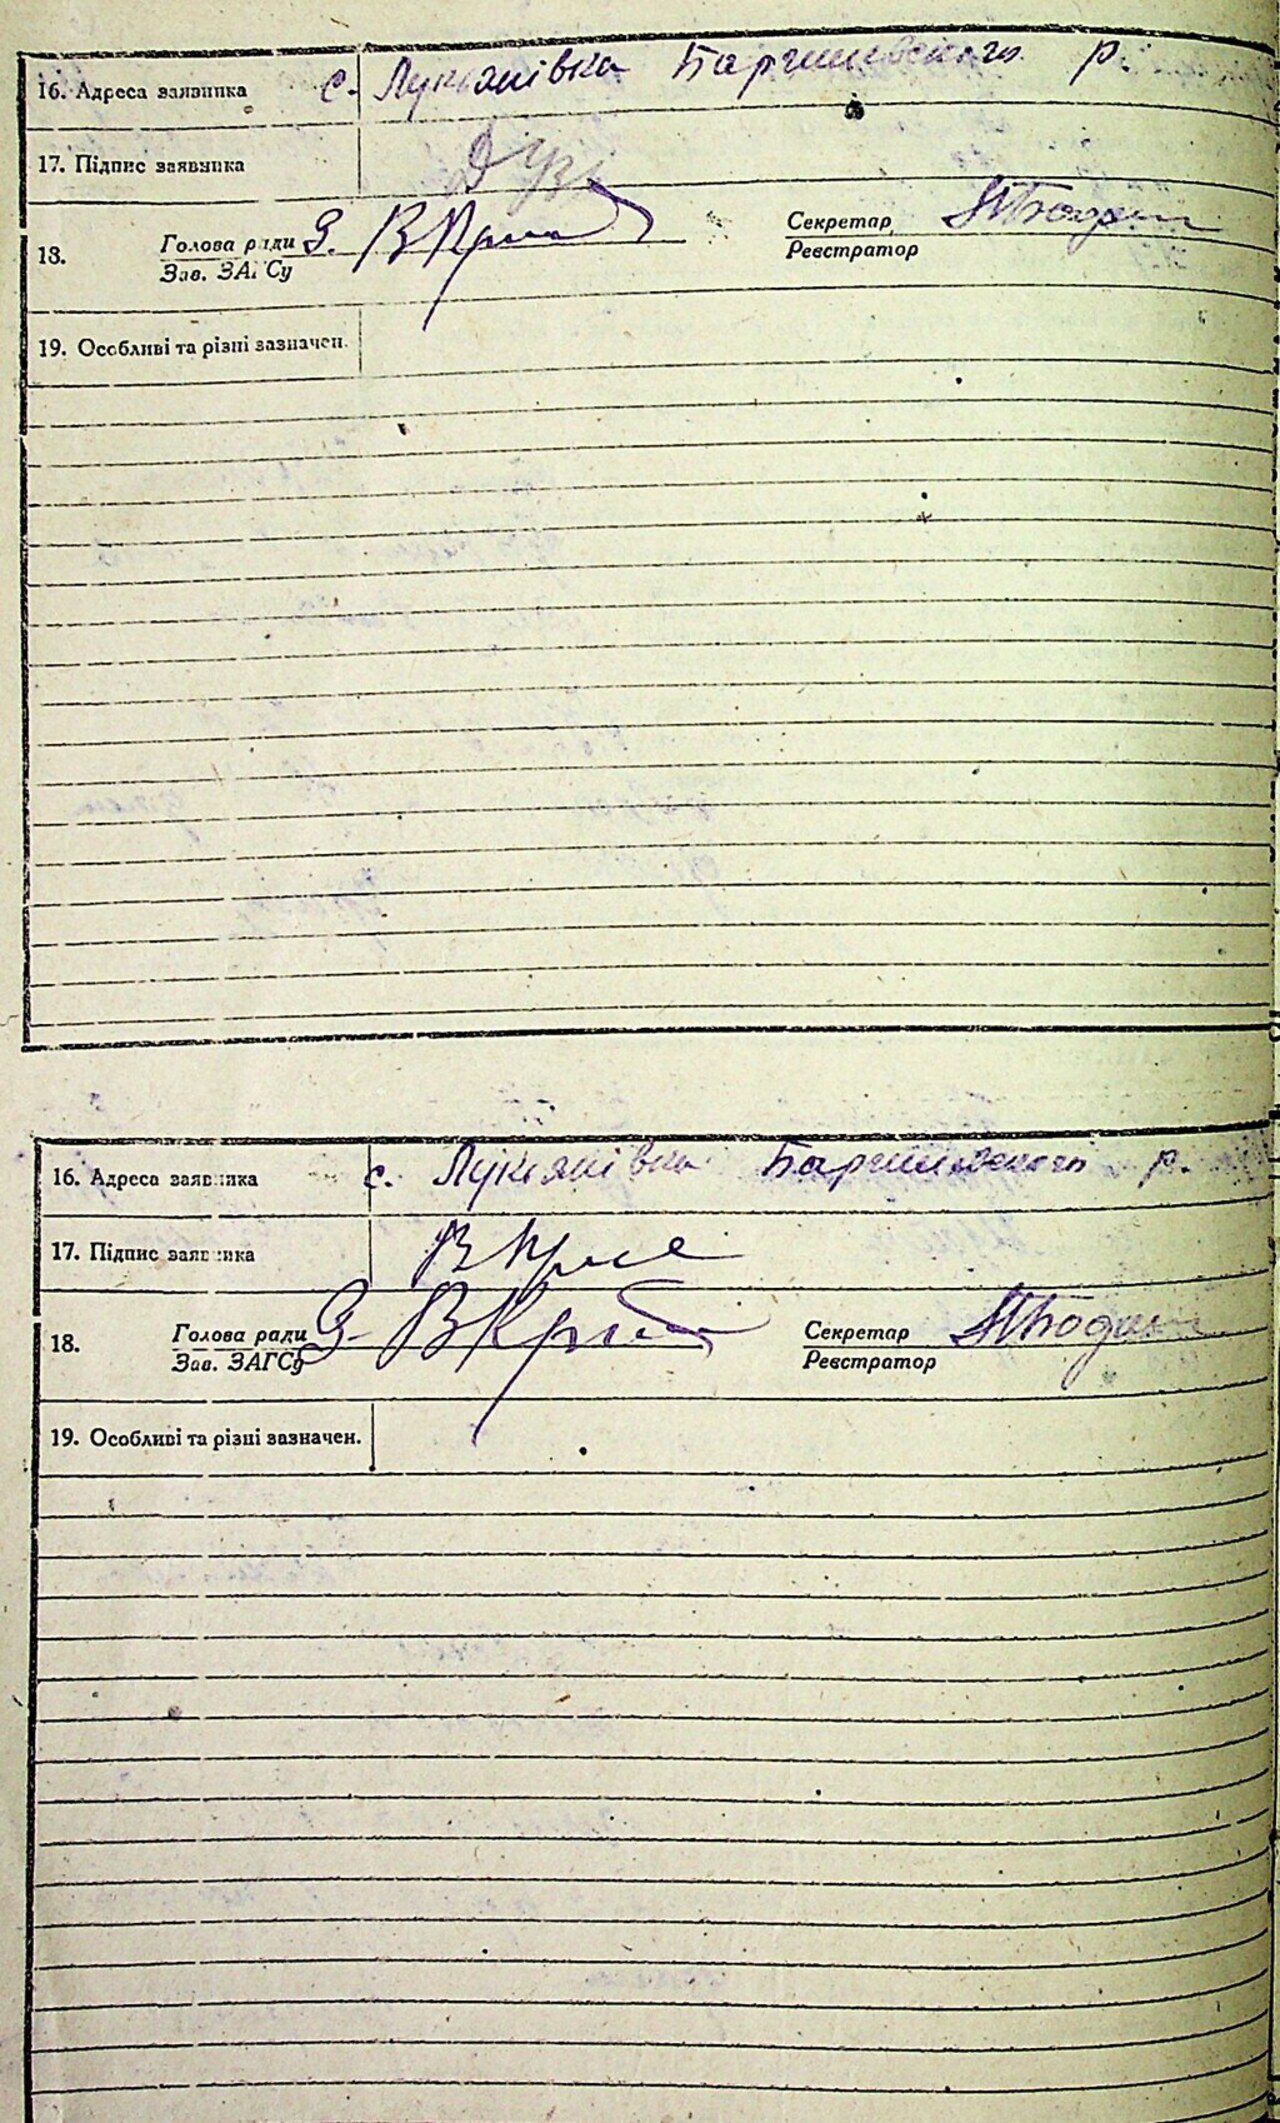 16. Адреса заявника с. Лукіянівка Баришівского р.
17. Підпис заявника
18. Голова ради З. Секретар
Зав. ЗАГСу Реєстратор
19. Особливі та різні зазначен.
16. Адреса заявника с. Лукіянівка Баришівского р.
17. Підпис заявника
18. Голова ради З. Секретар
Зав. ЗАГСу Реєстратор
19. Особливі та різні зазначен.